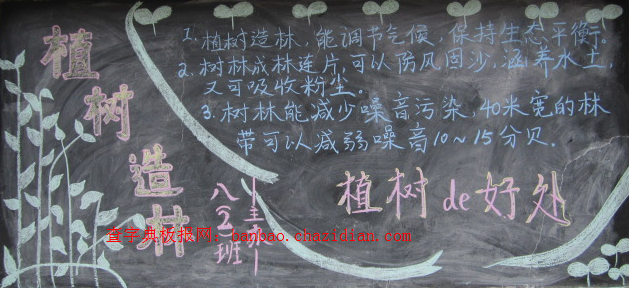 植树造林
1. 植树造林，能调节气候，保持生态平衡。
2. 树林成林连片，可以防风固沙，涵养水土，
又可吸收粉尘。
3. 树林能减少噪音污染，40米宽的林
带可以减弱噪音10～15分贝．
植树de好处
八3班
查字典板报网：banbao.chazidian.com